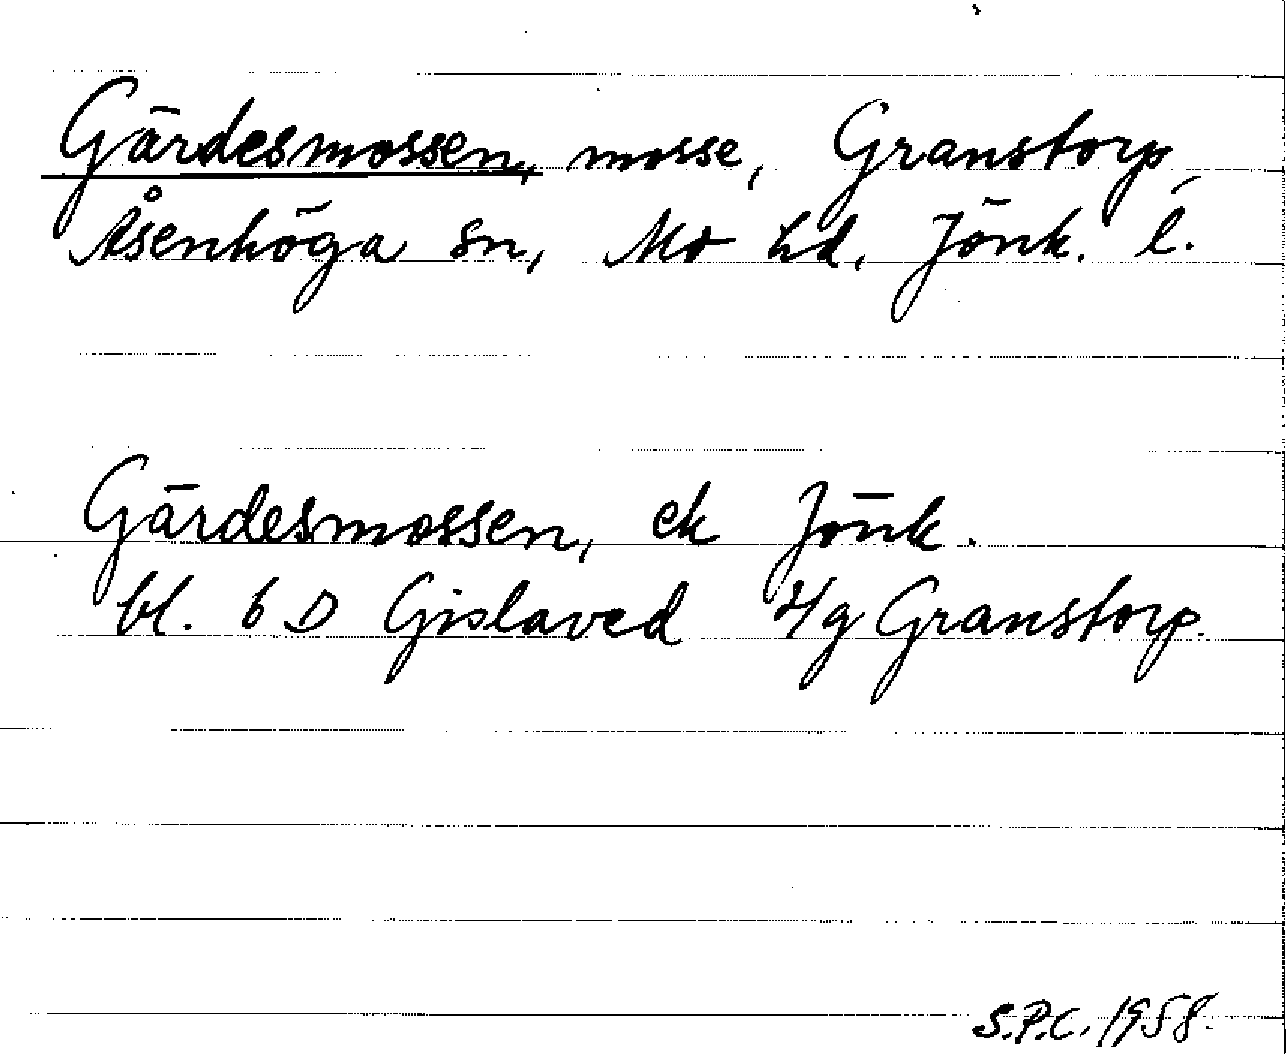 Gärdesmossen, mosse, Granstorp,
Åsenhöga sn, Mo hd, Jönk. l.
Gärdesmossen, ek Jönk.
bl. 6 D Gislaved 4g Granstorp.
S.P.C. 1958.